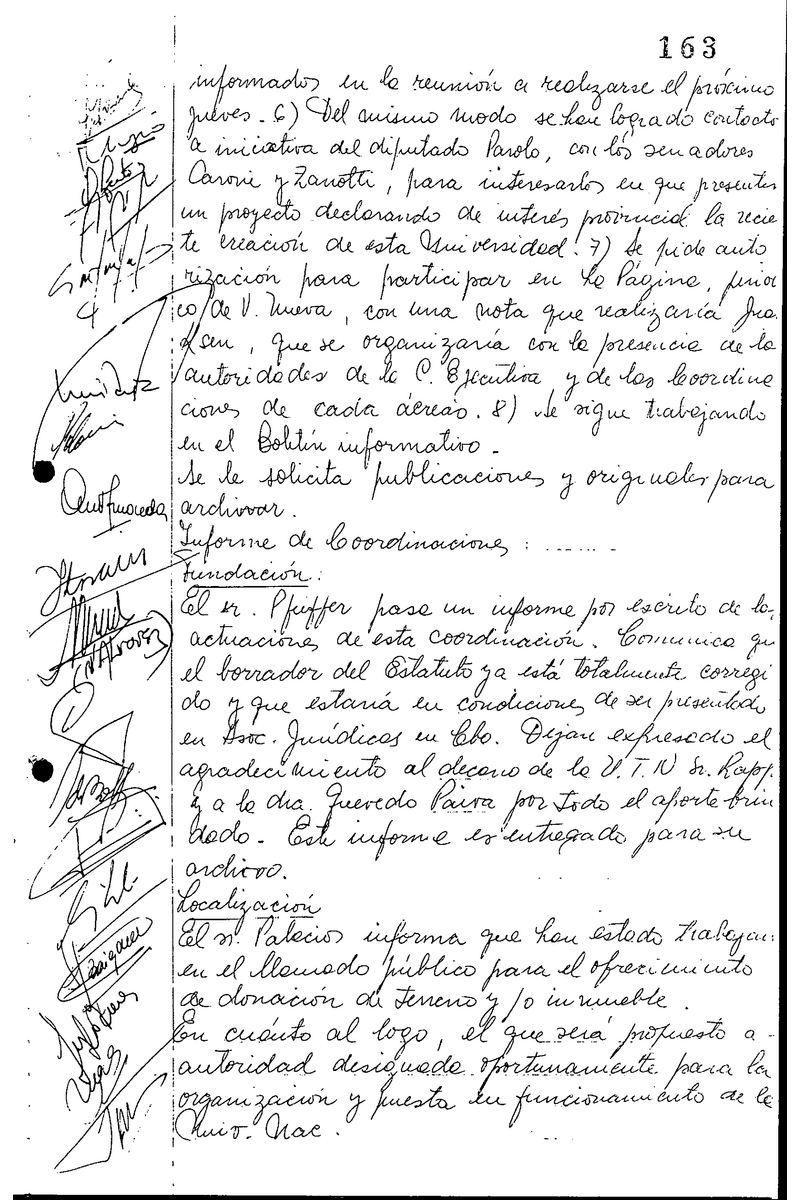 163
informados en la reunión a realizarse el próximo
jueves. 6) Del mismo modo se han logrado contacto
a iniciativa del diputado Parolo, con los senadores
Caroni y Zanotti, para interesarlos en que presenten
un proyecto declarando de interés provincial la recie
te creación de esta Universidad. 7) Se pide auto
rización para participar en La Página,
co de V. Nueva, con una nota que realizaría
que se organizaría con la presencia de la
autoridades de la C. Ejecutiva y de las Coordina
ciones de cada áerea. 8) Se sigue trabajando
en el Boletín informativo.
Se le solicita publicaciones y originales para
archivar.
Informe de Coordinaciones: ......
Fundación:
El sr. Pfeiffer pasa un informe por escrito de la
actuaciones de esta coordinación. Comunica qu
el borrador del Estatuto ya está totalmente corregi
do y que estaría en condiciones de ser presentado
en Asoc. Jurídicas en Cba. Dejan expresado el
agradecimiento al decano de la U.T.N Sr. Rapp
y a la dra. Quevedo Paiva por todo el aporte brin
dado. Este informe es entregado para su
archivo.
Localización
El sr. Palacios informa que han estado trabajan
en el llamado público para el ofrecimiento
de donación de terreno y/o inmueble.
En cuánto al logo, el que será propuesto a
autoridad designada oportunamente para la
organización y puesta en funcionamiento de la
Univ. Nac.